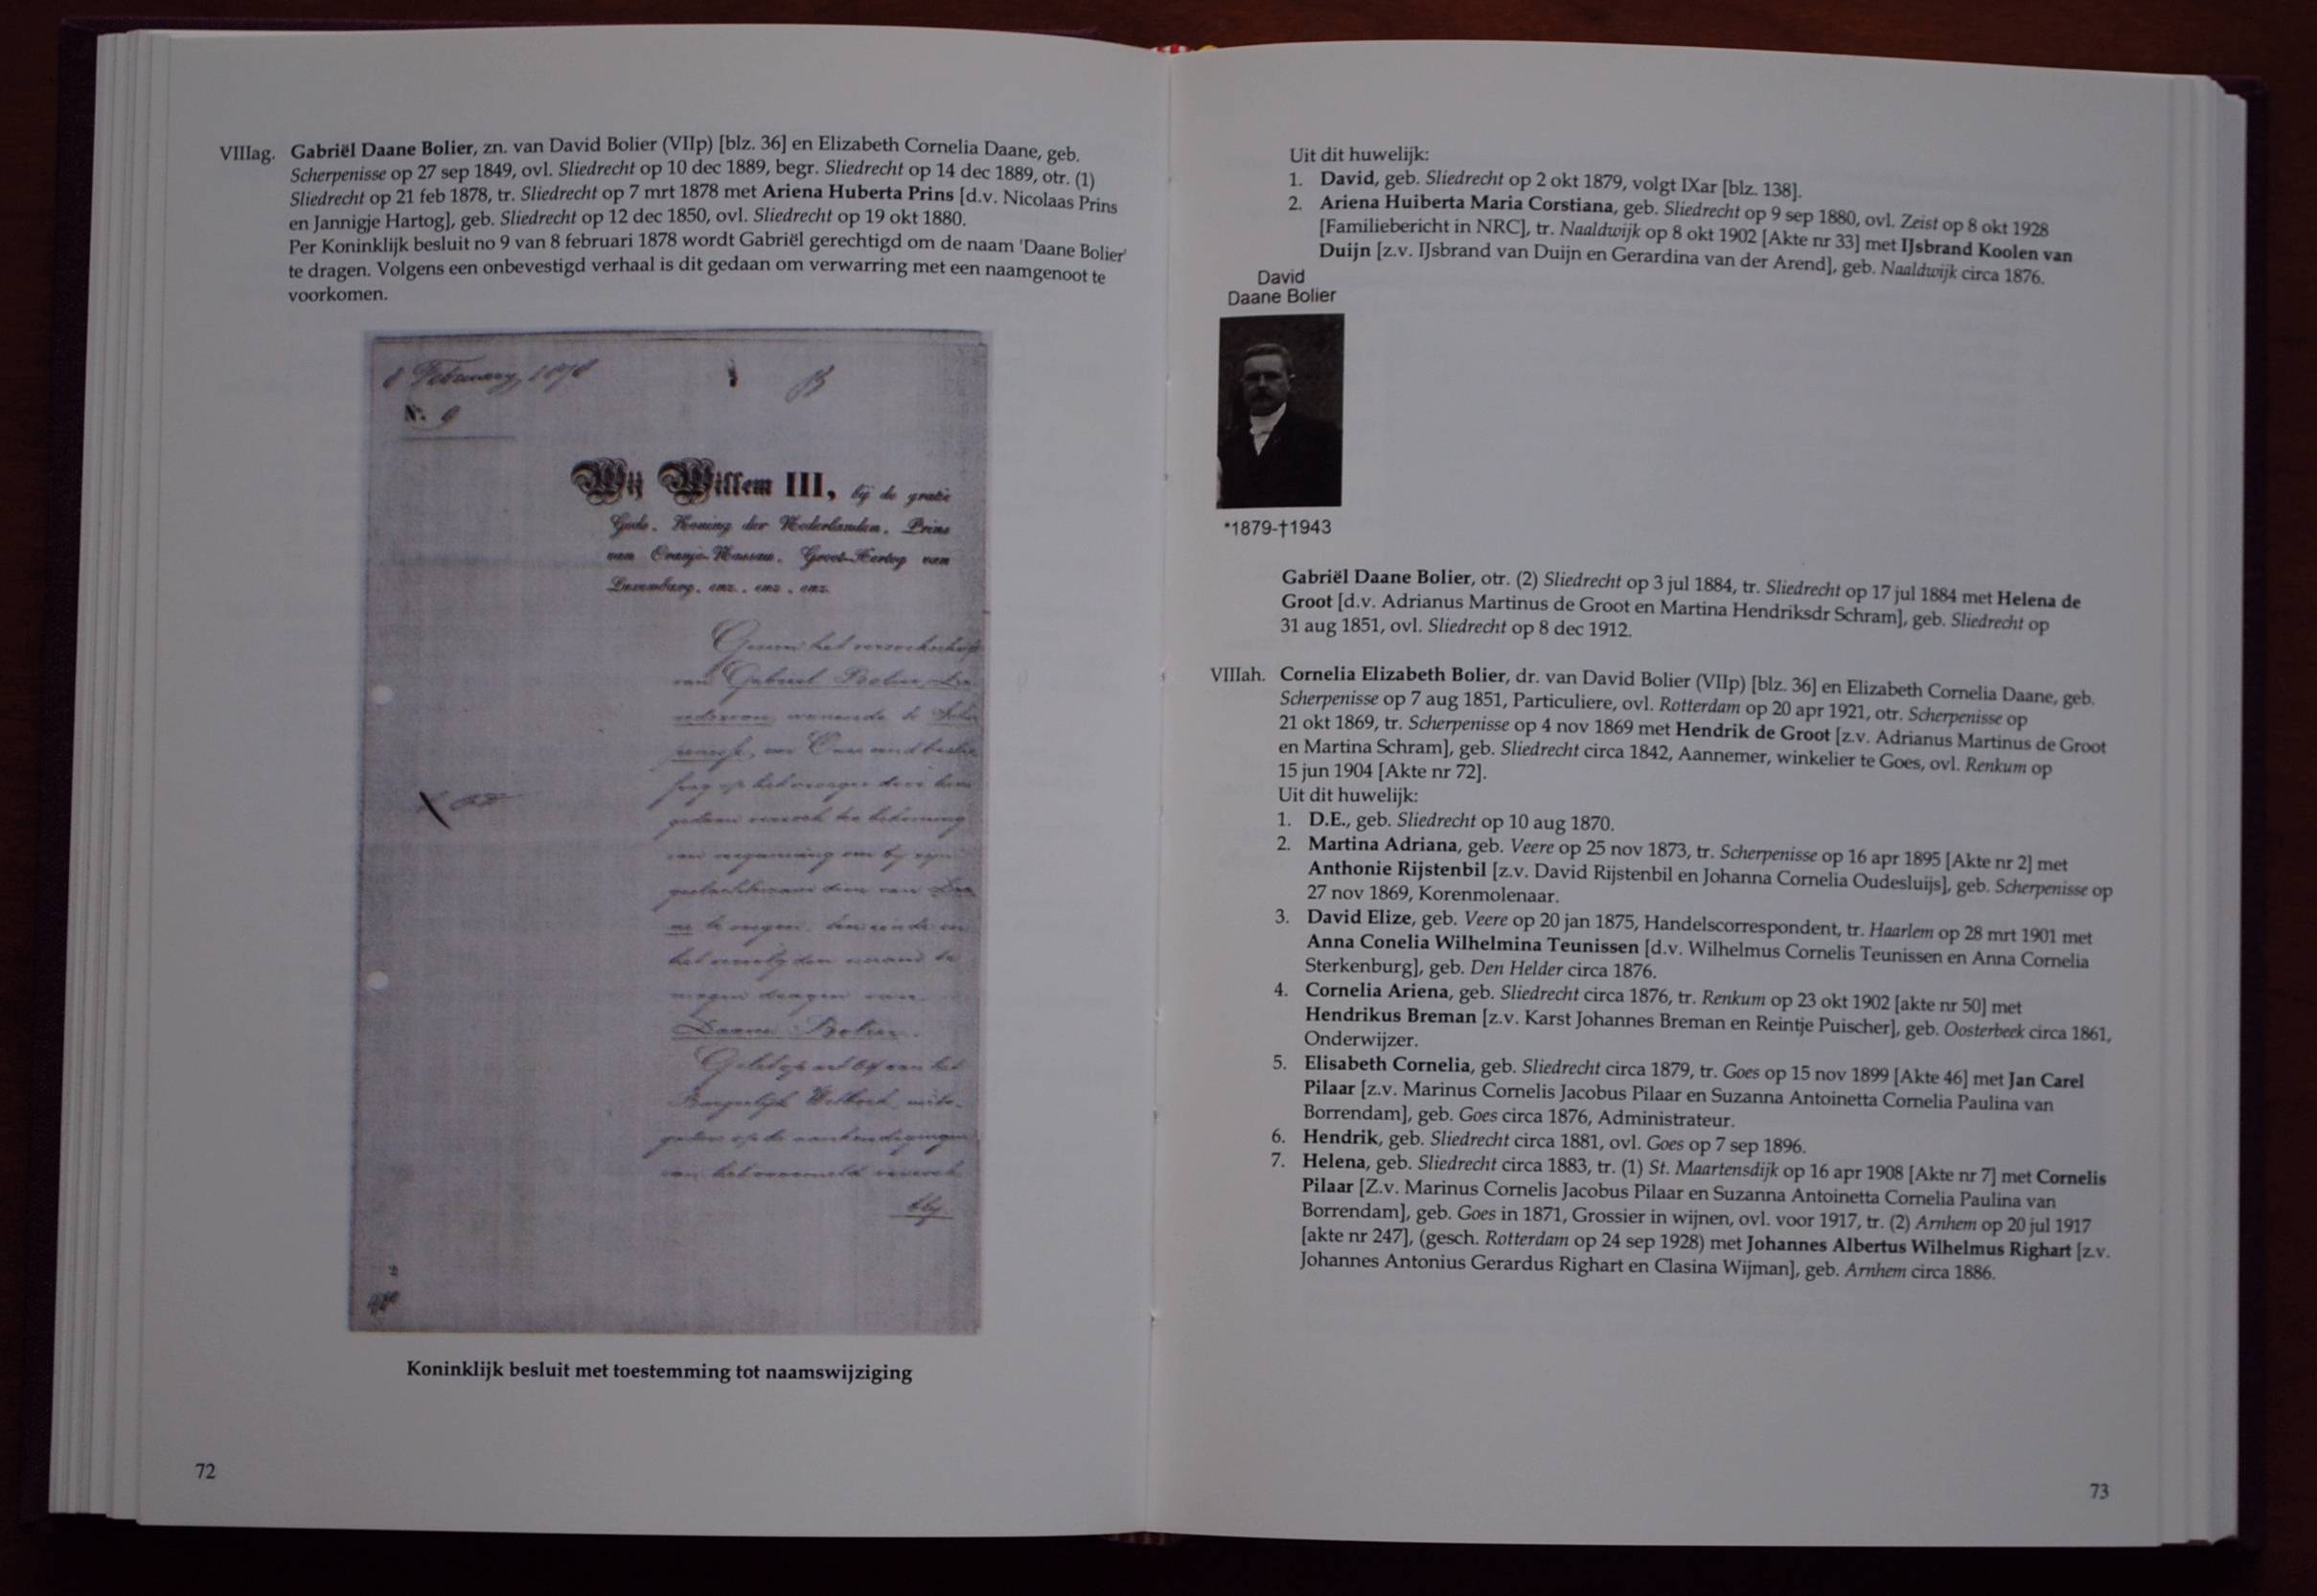 VIIIag. Gabriël Daane Bolier, zn. van David Bolier (VIIp) [blz. 36] en Elizabeth Cornelia Daane, geb.
Scherpenisse op 27 sep 1849, ovl. Sliedrecht op 10 dec 1889, begr. Sliedrecht op 14 dec 1889, otr. (1)
Sliedrecht op 21 feb 1878, tr. Sliedrecht op 7 mrt 1878 met Ariena Huberta Prins [d.v. Nicolaas Prins
en Jannigje Hartog], geb. Sliedrecht op 12 dec 1850, ovl. Sliedrecht op 19 okt 1880.
Per Koninklijk besluit no 9 van 8 februari 1878 wordt Gabriël gerechtigd om de naam 'Daane Bolier'
te dragen. Volgens een onbevestigd verhaal is dit gedaan om verwarring met een naamgenoot te
voorkomen.
8 February 1878
No. 9
Wij Willem III, bij de gratie
Gods, Koning der Nederlanden, Prins
van Oranje-Nassau, Groot-Hertog van
Luxemburg, enz., enz., enz.
Gezien het verzoekschrift
van Gabriel Bolier
gedaan verzoek ter bekoming
van vergunning om bij zijn
geslachtsnaam dien van Daa-
ne te voegen, ten einde in
het vervolg den naam te
mogen dragen van
Daane Bolier.
Gelet op art 64 van het
Burgerlijk Wetboek,
van het verzoek
Koninklijk besluit met toestemming tot naamswijziging
72
Uit dit huwelijk:
1. David, geb. Sliedrecht op 2 okt 1879, volgt IXar [blz. 138].
2. Ariena Huiberta Maria Corstiana, geb. Sliedrecht op 9 sep 1880, ovl. Zeist op 8 okt 1928
[Familiebericht in NRC], tr. Naaldwijk op 8 okt 1902 [Akte nr 33] met IJsbrand Koolen van
Duijn [z.v. IJsbrand van Duijn en Gerardina van der Arend], geb. Naaldwijk circa 1876.
David
Daane Bolier
*1879-†1943
Gabriël Daane Bolier, otr. (2) Sliedrecht op 3 jul 1884, tr. Sliedrecht op 17 jul 1884 met Helena de
Groot [d.v. Adrianus Martinus de Groot en Martina Hendriksdr Schram], geb. Sliedrecht op
31 aug 1851, ovl. Sliedrecht op 8 dec 1912.
VIIIah. Cornelia Elizabeth Bolier, dr. van David Bolier (VIIp) [blz. 36] en Elizabeth Cornelia Daane, geb.
Scherpenisse op 7 aug 1851, Particuliere, ovl. Rotterdam op 20 apr 1921, otr. Scherpenisse op
21 okt 1869, tr. Scherpenisse op 4 nov 1869 met Hendrik de Groot [z.v. Adrianus Martinus de Groot
en Martina Schram], geb. Sliedrecht circa 1842, Aannemer, winkelier te Goes, ovl. Renkum op
15 jun 1904 [Akte nr 72].
Uit dit huwelijk:
1. D.E., geb. Sliedrecht op 10 aug 1870.
2. Martina Adriana, geb. Veere op 25 nov 1873, tr. Scherpenisse op 16 apr 1895 [Akte nr 2] met
Anthonie Rijstenbil [z.v. David Rijstenbil en Johanna Cornelia Oudesluijs], geb. Scherpenisse op
27 nov 1869, Korenmolenaar.
3. David Elize, geb. Veere op 20 jan 1875, Handelscorrespondent, tr. Haarlem op 28 mrt 1901 met
Anna Conelia Wilhelmina Teunissen [d.v. Wilhelmus Cornelis Teunissen en Anna Cornelia
Sterkenburg], geb. Den Helder circa 1876.
4. Cornelia Ariena, geb. Sliedrecht circa 1876, tr. Renkum op 23 okt 1902 [akte nr 50] met
Hendrikus Breman [z.v. Karst Johannes Breman en Reintje Puischer], geb. Oosterbeek circa 1861,
Onderwijzer.
5. Elisabeth Cornelia, geb. Sliedrecht circa 1879, tr. Goes op 15 nov 1899 [Akte 46] met Jan Carel
Pilaar [z.v. Marinus Cornelis Jacobus Pilaar en Suzanna Antoinetta Cornelia Paulina van
Borrendam], geb. Goes circa 1876, Administrateur.
6. Hendrik, geb. Sliedrecht circa 1881, ovl. Goes op 7 sep 1896.
7. Helena, geb. Sliedrecht circa 1883, tr. (1) St. Maartensdijk op 16 apr 1908 [Akte nr 7] met Cornelis
Pilaar [Z.v. Marinus Cornelis Jacobus Pilaar en Suzanna Antoinetta Cornelia Paulina van
Borrendam], geb. Goes in 1871, Grossier in wijnen, ovl. voor 1917, tr. (2) Arnhem op 20 jul 1917
[akte nr 247], (gesch. Rotterdam op 24 sep 1928) met Johannes Albertus Wilhelmus Righart [z.v.
Johannes Antonius Gerardus Righart en Clasina Wijman], geb. Arnhem circa 1886.
73